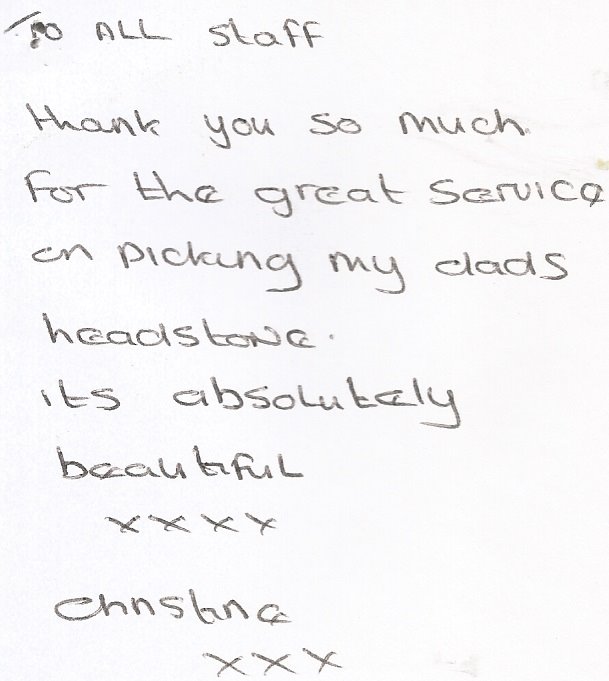 To ALL staff
thank you so much
for the great service
on picking my dads
headstone.
its absolutely
beautiful
xxxx
christine
xxx